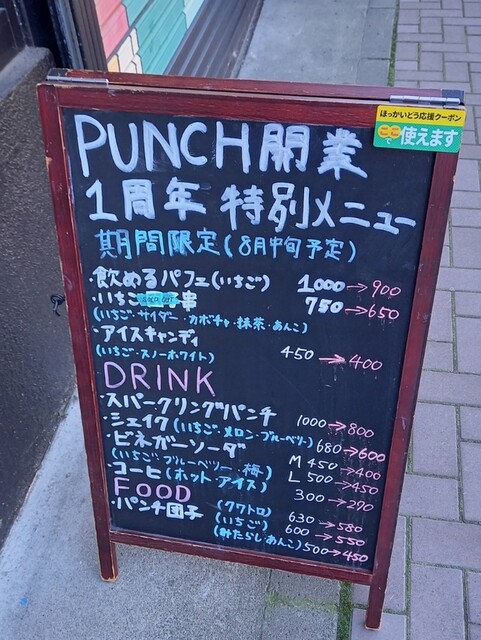 ほっかいどう応援クーポン
ここで使えます
PUNCH開業
1周年 特別メニュー
期間限定(8月中旬予定)
・飲めるパフェ(いちご) 1000→900
・いちご SOLD OUT 串 750→650
(いちご・サイダー・カボチャ・抹茶・あんこ)
・アイスキャンディ 450→400
(いちご・スノーホワイト)
DRINK
・スパークリングパンチ 1000→800
・シェイク(いちご・メロン・ブルーベリー) 680→600
・ビネガーソーダ M 450→400
(いちご・ブルーベリー・梅) L 500→450
・コーヒ(ホット・アイス) 300→270
FOOD
・パンチ団子 (クワトロ) 630→580
(いちご) 600→550
(みたらし・あんこ) 500→450